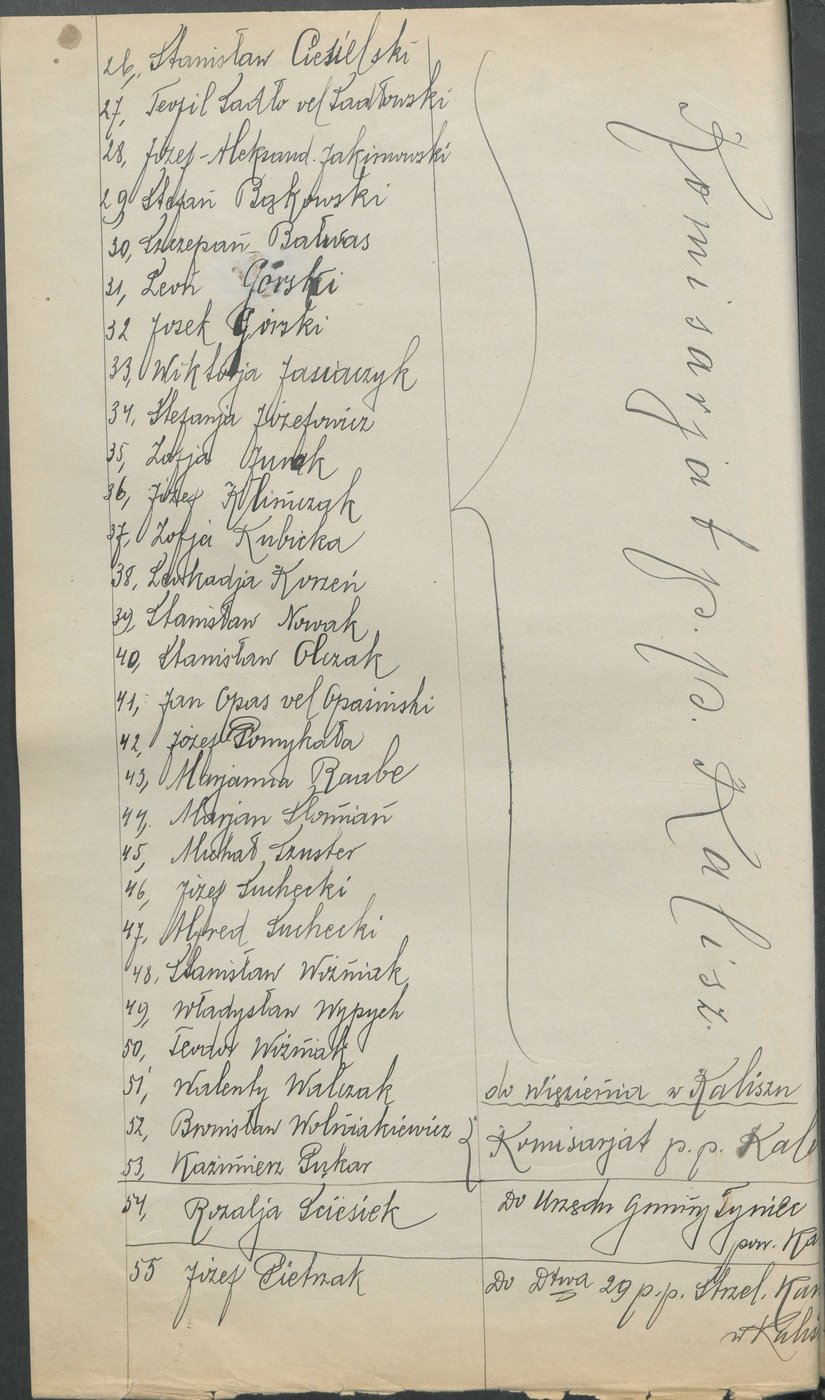 26, Stanisław Ciesielski
27, Teofil Sadło vel Sadłowski
28, Józef-Aleksand. Jakimowski
29, Stefan Bąkowski
30, Szczepan Bałwas
31, Leon Górski
32 Josek Górski
33, Wiktorja Jasiaczyk
34, Stefanja Józefowicz
35, Zofja
36, Józef Klimczak
37, Zofja Kubicka
38, Leokadja Korzeń
39, Stanisław Nowak
40, Stanisław Olczak
41, Jan Opas vel Opasiński
42, Józef Pomykała
43, Marjanna Raabe
44, Marjan Słomian
45, Michał Szuster
46, Józef Suchecki
47, Alfred Suchecki
48, Stanisław Woźniak
49, Władysław Wypych
50, Teodor Woźniak
Komisarjat P.P. Kalisz.
51, Walenty Walczak do więzienia w Kaliszu
52, Bronisław Wolniakiewicz Komisarjat p.p. Kali
53, Kazimierz Pykar
54, Rozalja Sciesiek Do Urzędu Gminy Tyniec
pow. Ka
55 Józef Pietrzak Do Dtwa 29 p.p. Strzel. Kan
w Kalis